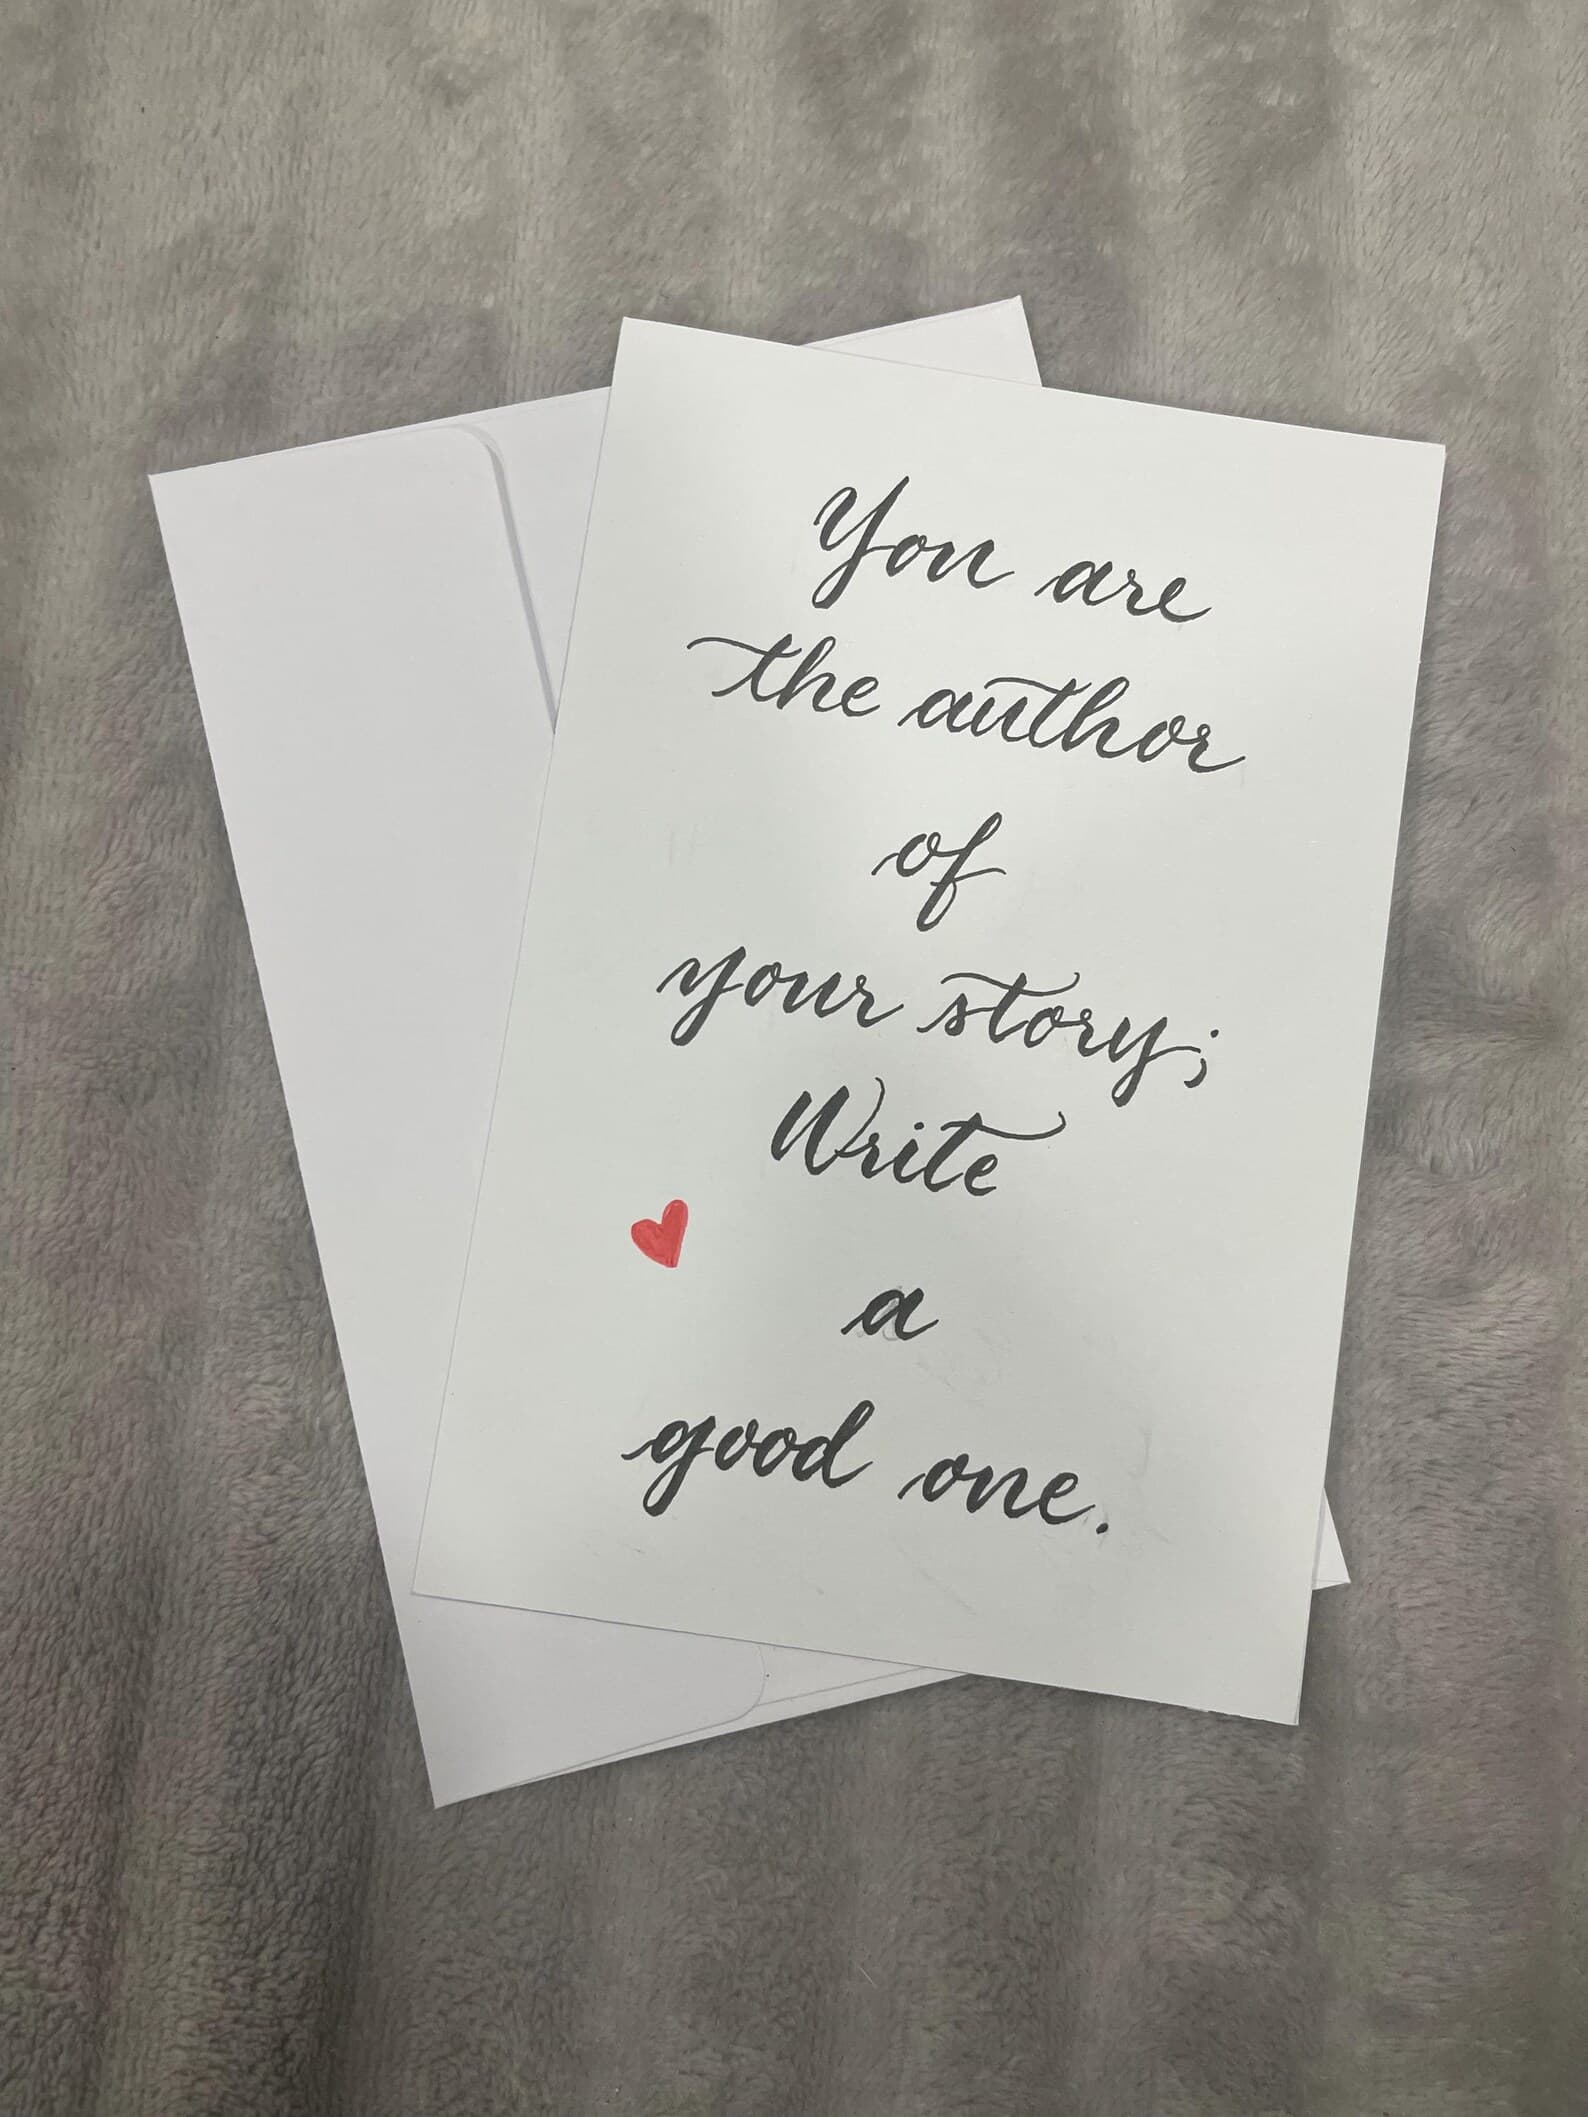 You are
the author
of
your story;
Write
a
good one.